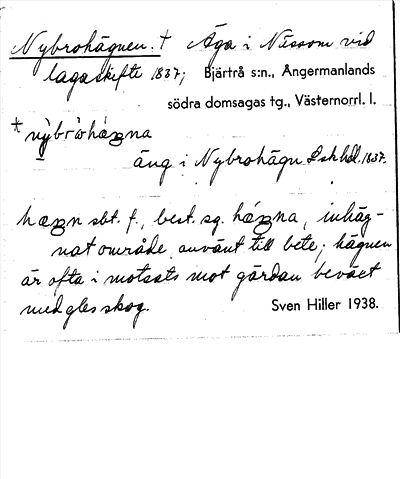 Nybrohägnen. † Äga i Nässom vid
lagaskifte 1837; Bjärtrå s:n., Ångermanlands
södra domsagas tg., Västernorrl. l.
äng i Nybrohägn L sk hdl. 1837.
sbt. f., best. sg. inhäg-
nat område använt till bete; hägnen
är ofta i motsats mot gärdan beväxt
med gles skog. Sven Hiller 1938.